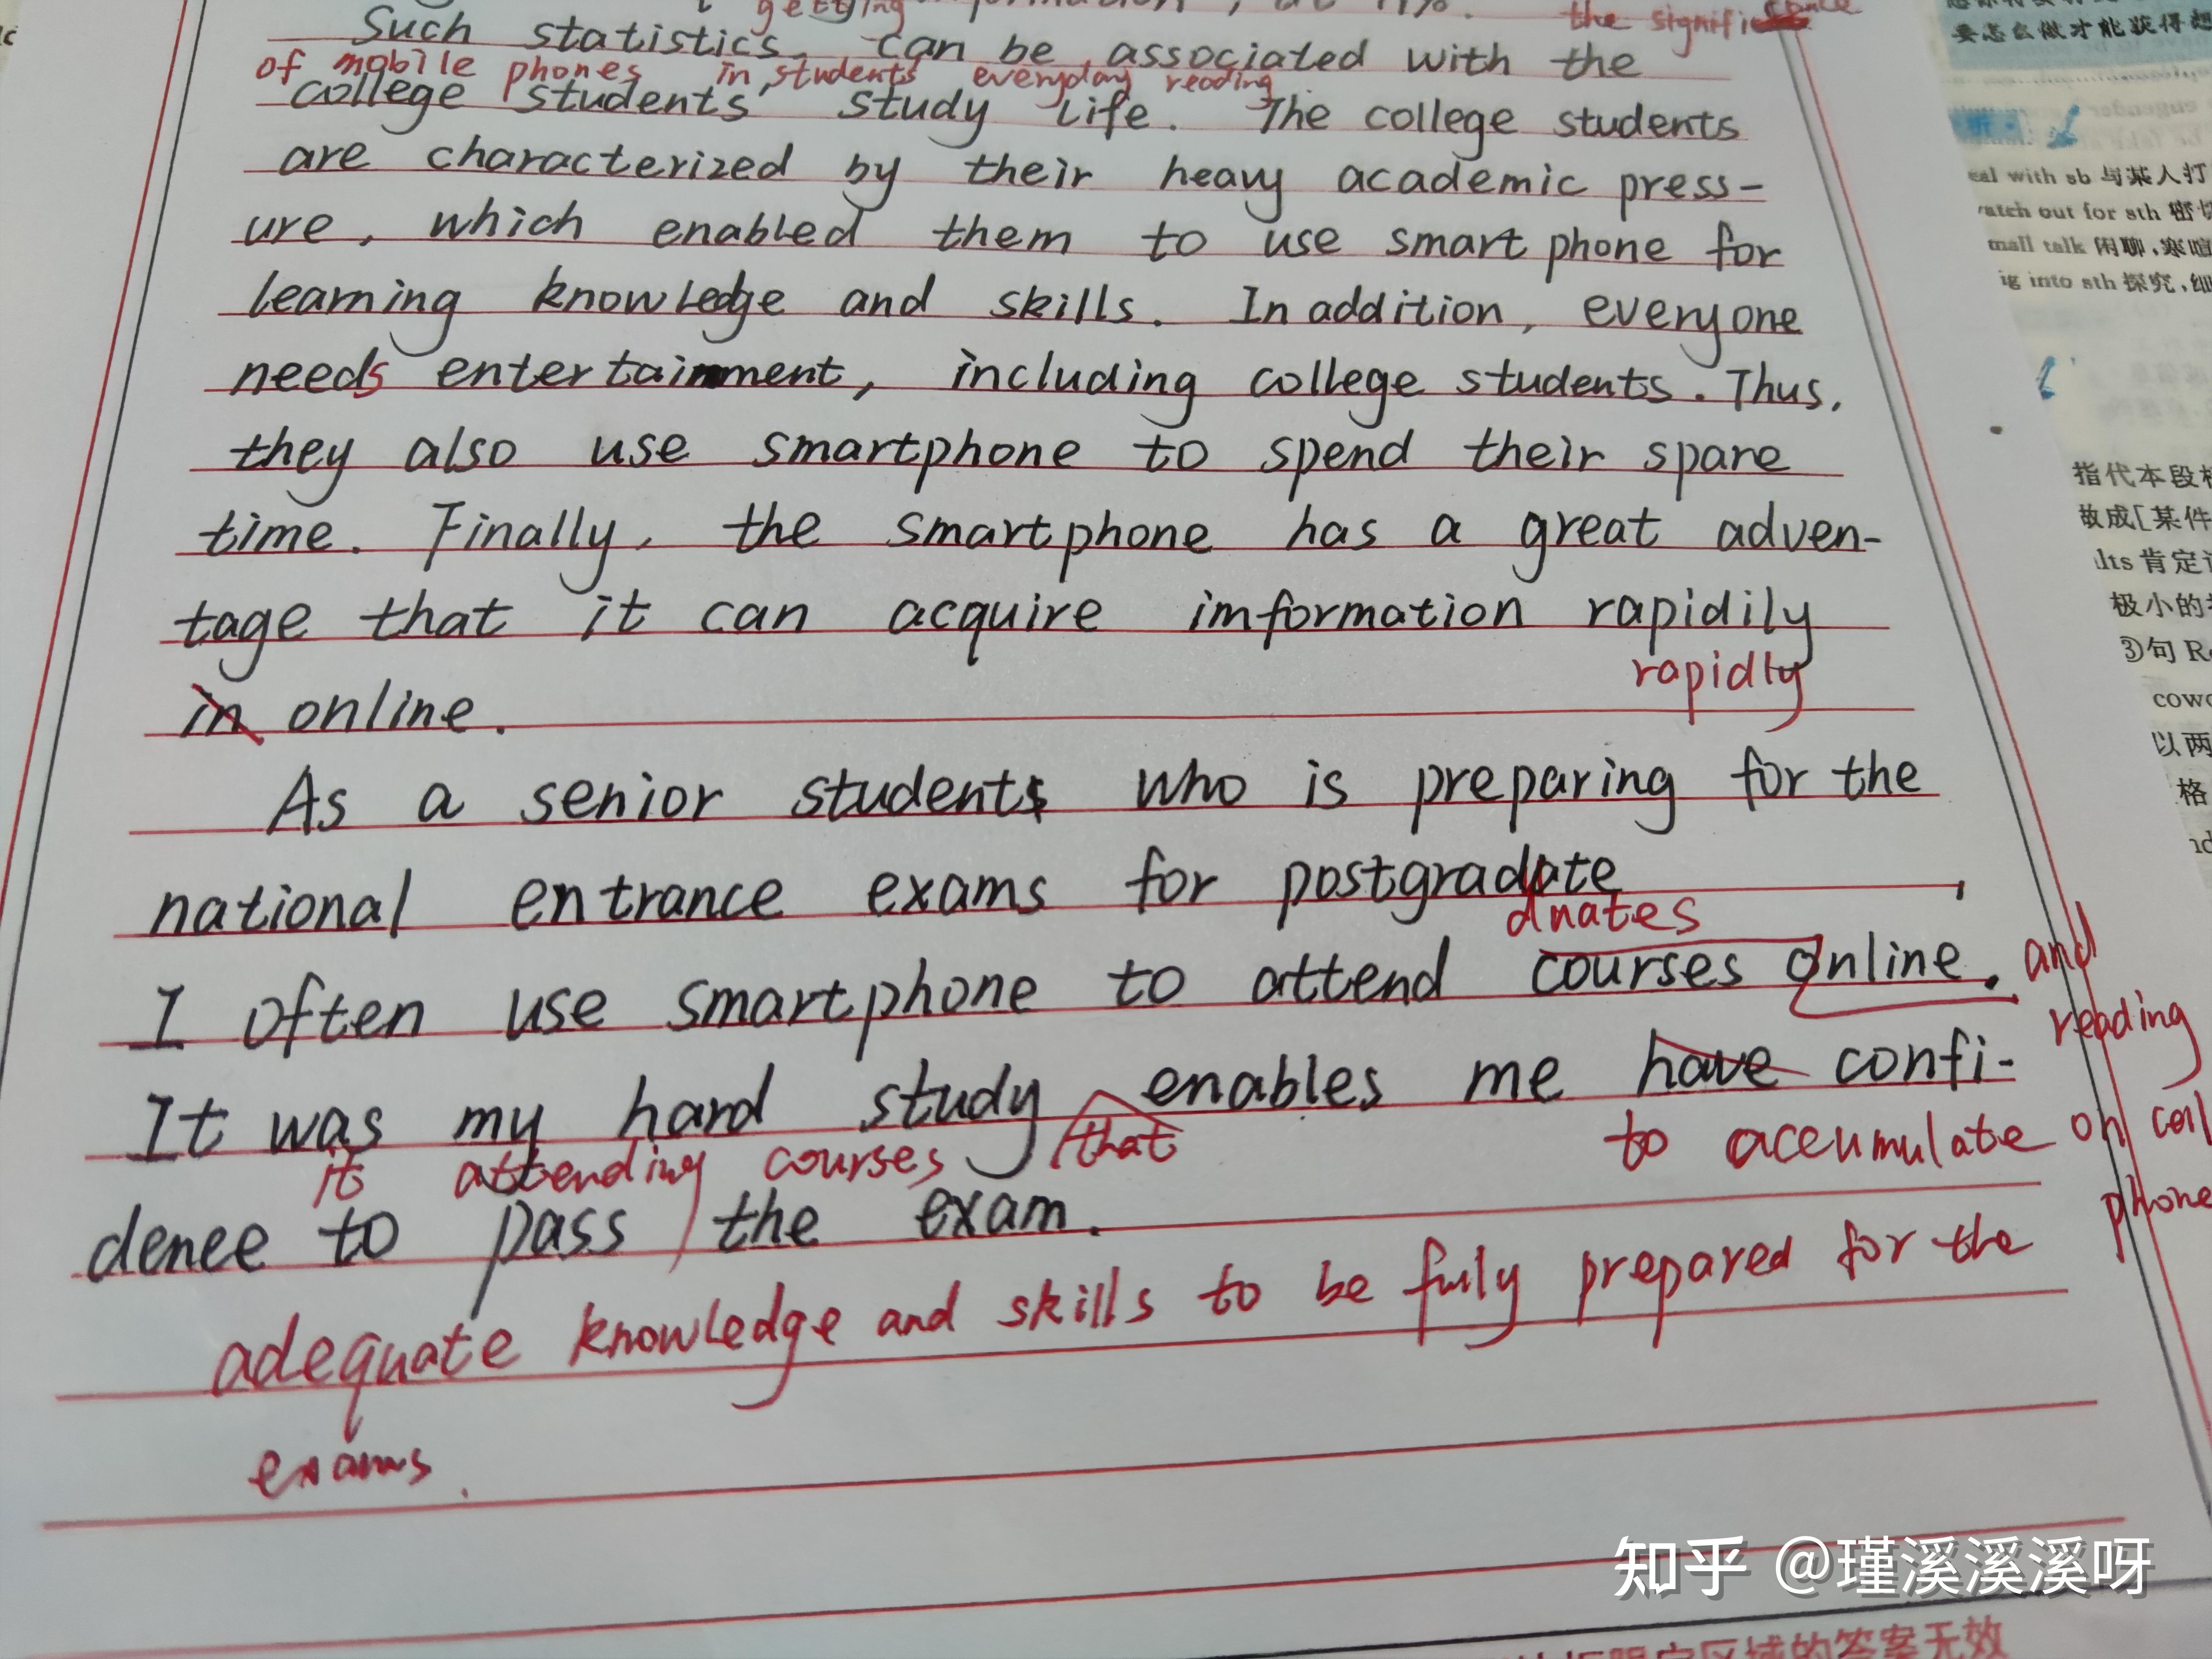 getting
the significance
Such statistics can be associated with the
of mobile phones in students' everyday reading
college students' study life. The college students
are characterized by their heavy academic press-
ure, which enabled them to use smart phone for
learning knowledge and skills. In addition, everyone
needs entertainment, including college students. Thus,
they also use smartphone to spend their spare
time. Finally, the smartphone has a great adven-
tage that it can acquire imformation rapidily
rapidly
in online.
As a senior students who is preparing for the
national entrance exams for postgraduate
duates
I often use smartphone to attend courses online. and
reading
It was my hard study enables me have confi-
it attending courses that to accumulate on cell
phone
dence to pass the exam.
adequate knowledge and skills to be fully prepared for the
exams.
要怎么做才能获得
eal with sb 与某人打
atch out for sth 密切
mall talk 闲聊,寒暄
ig into sth 探究,细
指代本段
做成[某件
lts 肯定
极小的
③句 R
cowo
以两
格
知乎 @瑾溪溪溪呀
区域的答案无效